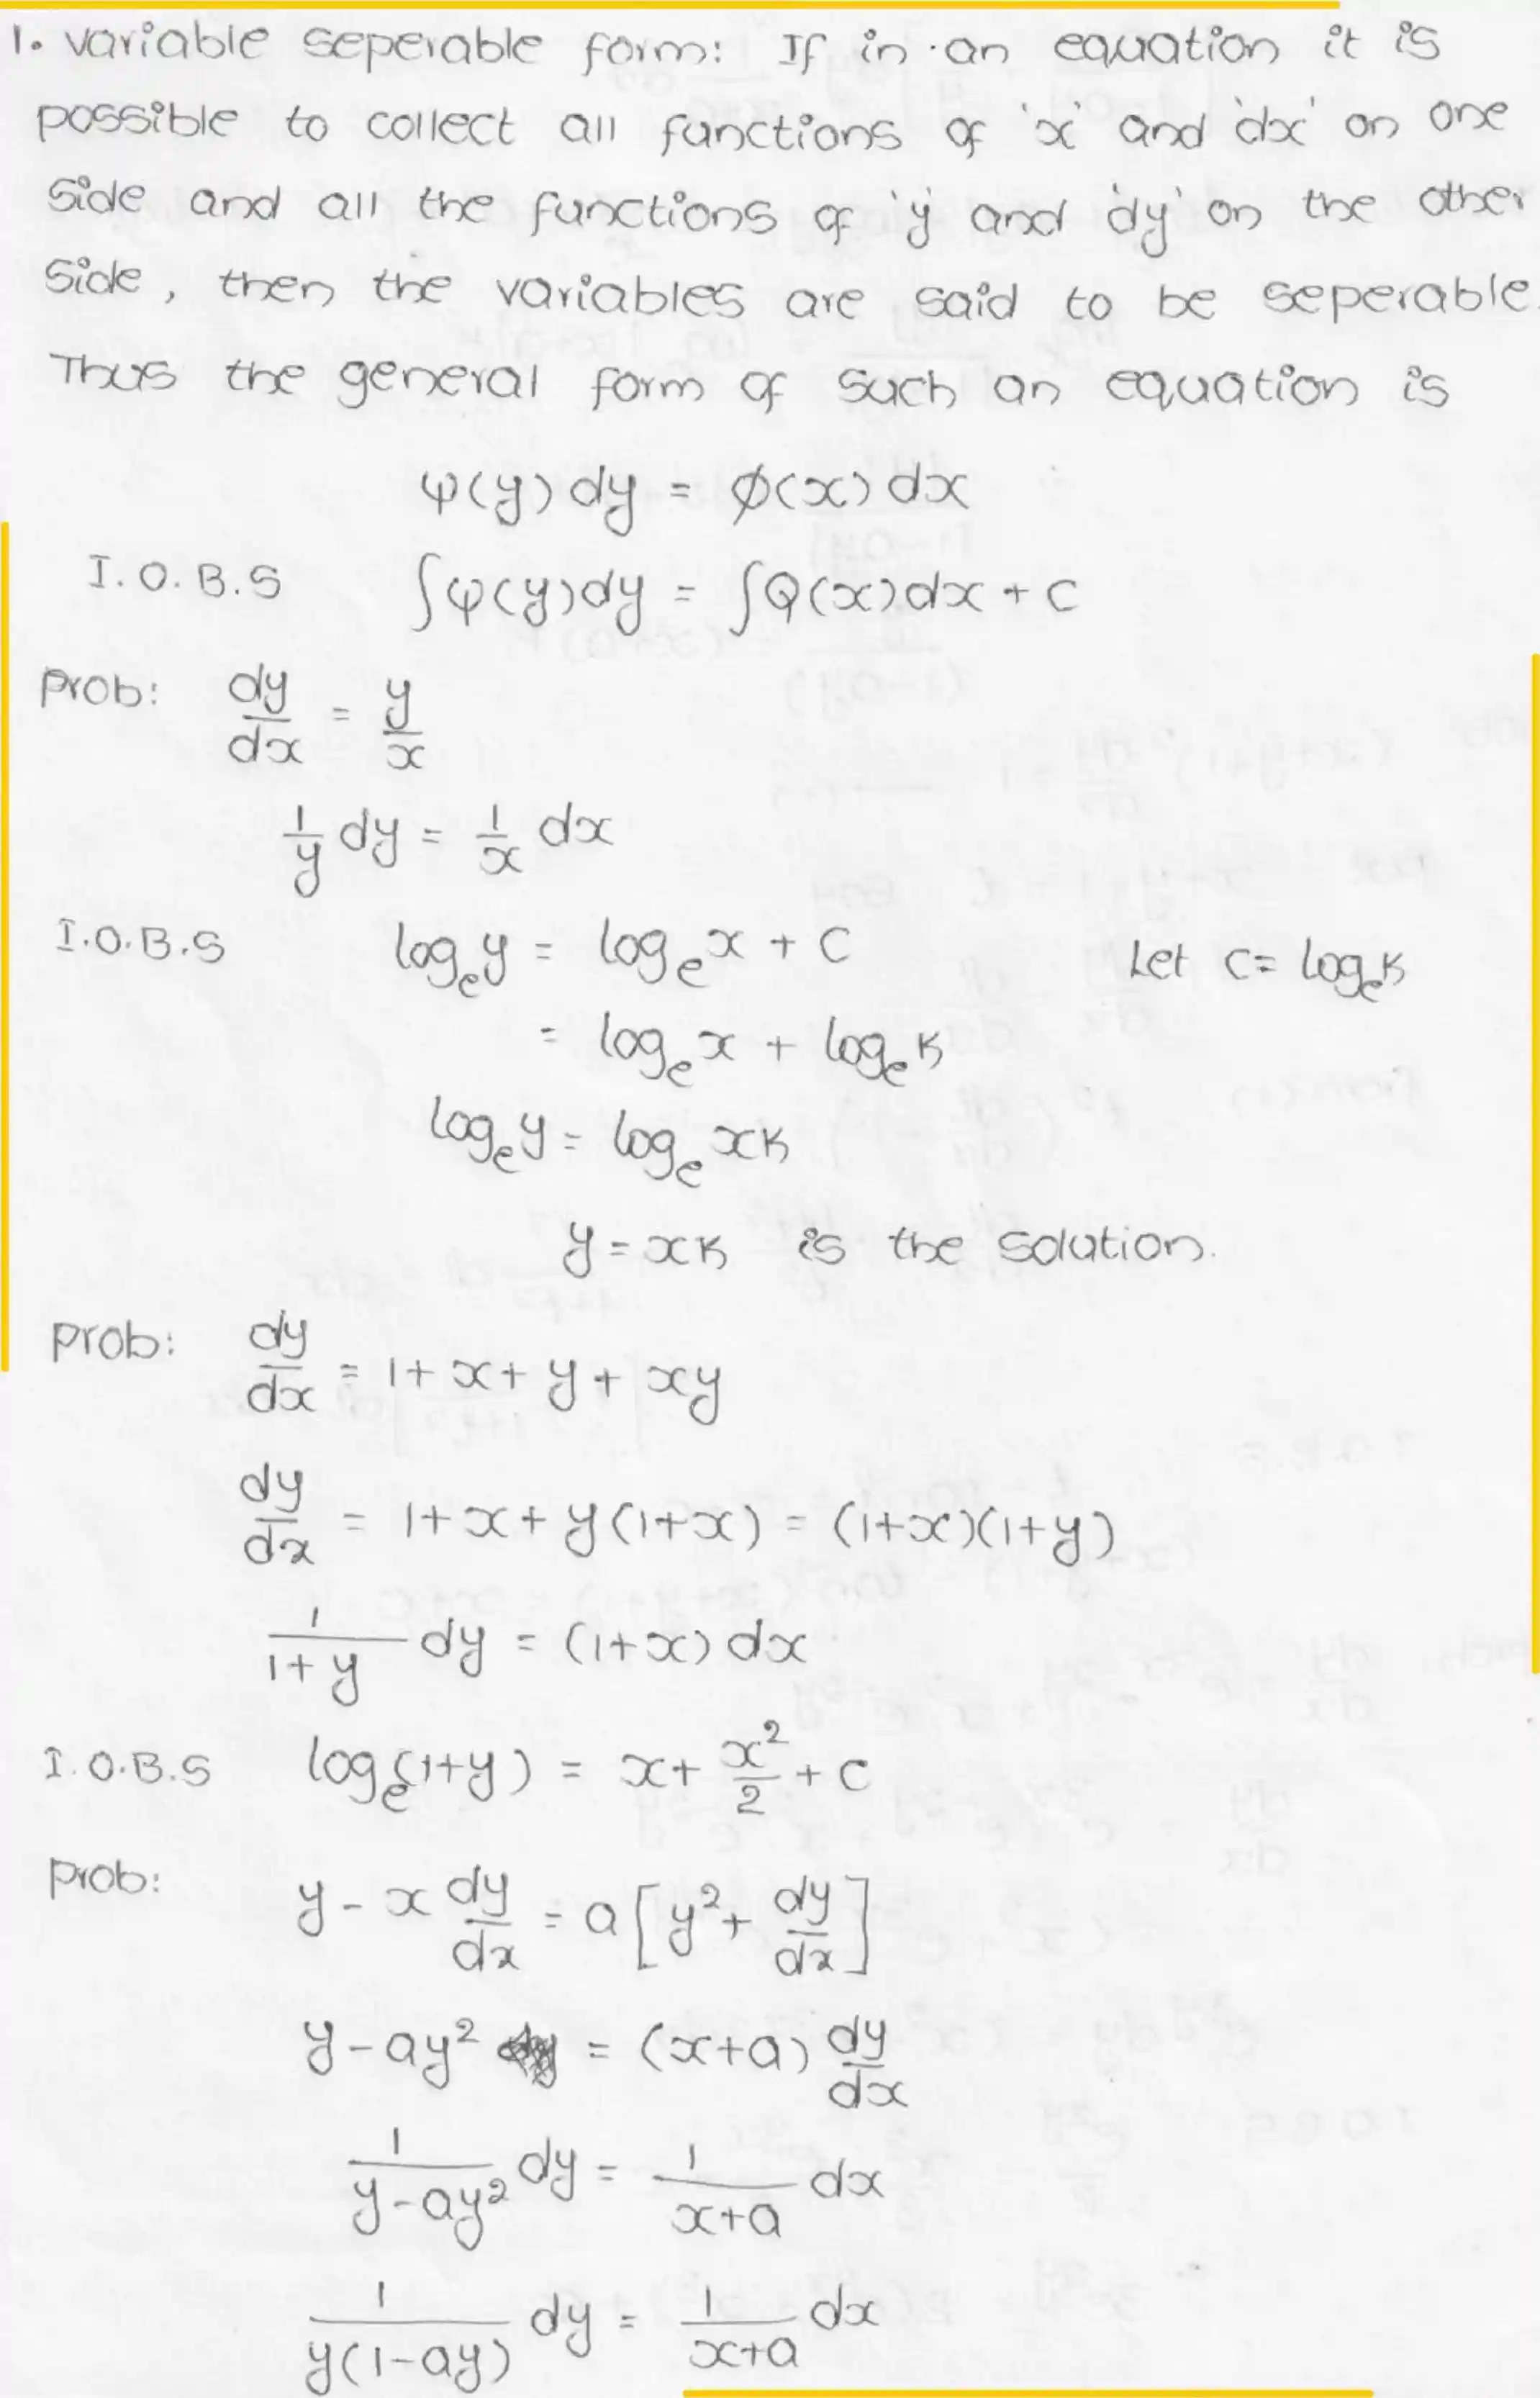 1. variable seperable form: If in an equation it is
possible to collect all functions of 'x' and 'dx' on one
side and all the functions of 'y' and 'dy' on the other
side, then the variables are said to be seperable.
Thus the general form of such an equation is
ψ(y) dy = ϕ(x) dx
I.O.B.S ∫ψ(y)dy = ∫Q(x)dx + c
Prob: dy/dx = y/x
1/y dy = 1/x dx
I.O.B.S logₑy = logₑx + C Let C = logₑK
= logₑx + logₑK
logₑy = logₑxK
y = xK is the solution.
Prob: dy/dx = 1+x+y+xy
dy/dx = 1+x+y(1+x) = (1+x)(1+y)
1/(1+y) dy = (1+x) dx
I.O.B.S logₑ(1+y) = x + x²/2 + C
Prob: y - x dy/dx = a[y² + dy/dx]
y - ay² = (x+a) dy/dx
1/(y-ay²) dy = 1/(x+a) dx
1/(y(1-ay)) dy = 1/(x+a) dx